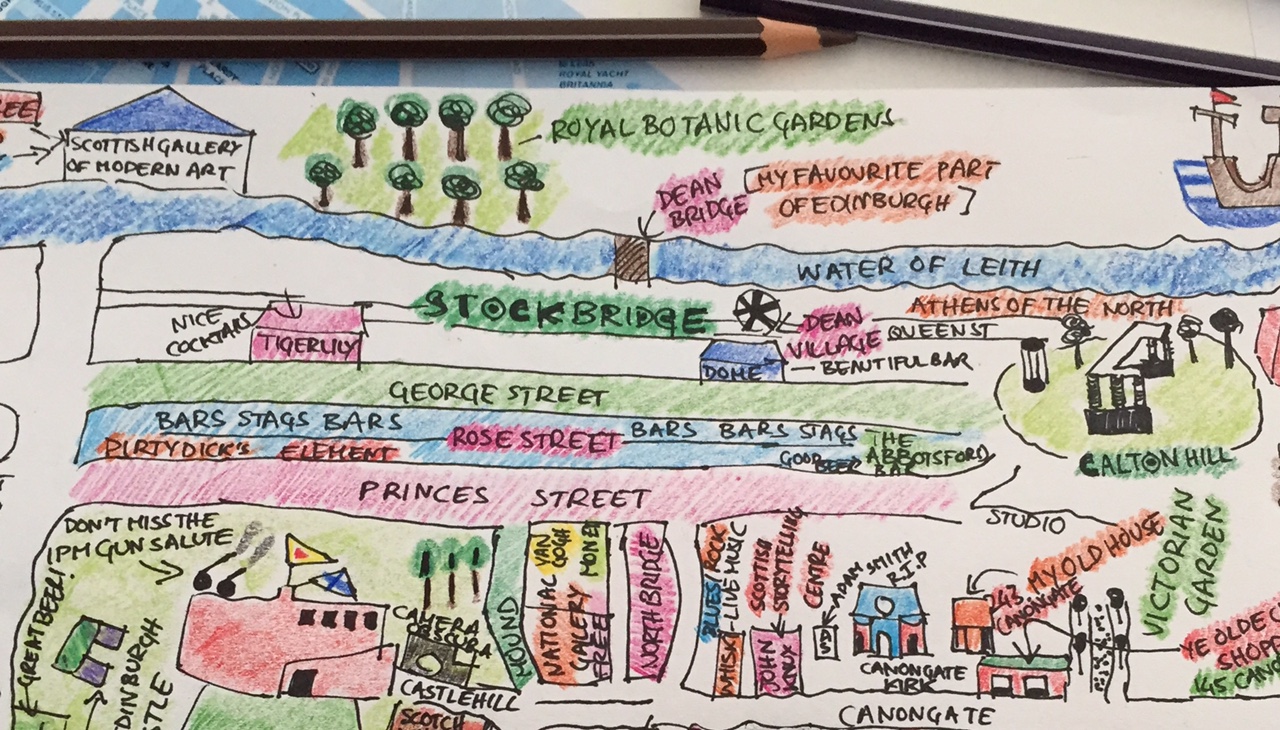 ROYAL YACHT
BRITANNIA
SCOTTISH GALLERY
OF MODERN ART
ROYAL BOTANIC GARDENS
DEAN
BRIDGE
[MY FAVOURITE PART
OF EDINBURGH]
WATER OF LEITH
NICE
COCKTAILS
TIGERLILY
STOCKBRIDGE
DEAN
VILLAGE
ATHENS OF THE NORTH
QUEEN ST
DOME
BEAUTIFUL BAR
GEORGE STREET
BARS STAGS BARS
DIRTY DICK'S
ELEMENT
ROSE STREET
BARS BARS STAGS
GOOD BEER
THE
ABBOTSFORD
BAR
CALTON HILL
PRINCES STREET
STUDIO
DON'T MISS THE
1PM GUN SALUTE
GREAT BEER!
CAMERA
OBSCURA
CASTLEHILL
SCOTCH
MOUND
NATIONAL
GALLERY
FREE
VAN
GOGH
MONET
NORTH BRIDGE
BLUES ROCK
-LIVE MUSIC
WHISKI
SCOTTISH
STORYTELLING
CENTRE
JOHN
KNOX
ADAM SMITH
R.I.P
CANONGATE
KIRK
243
CANONGATE
MY OLD HOUSE
VICTORIAN
GARDEN
YE OLDE
SHOPPE
145
CANONGATE